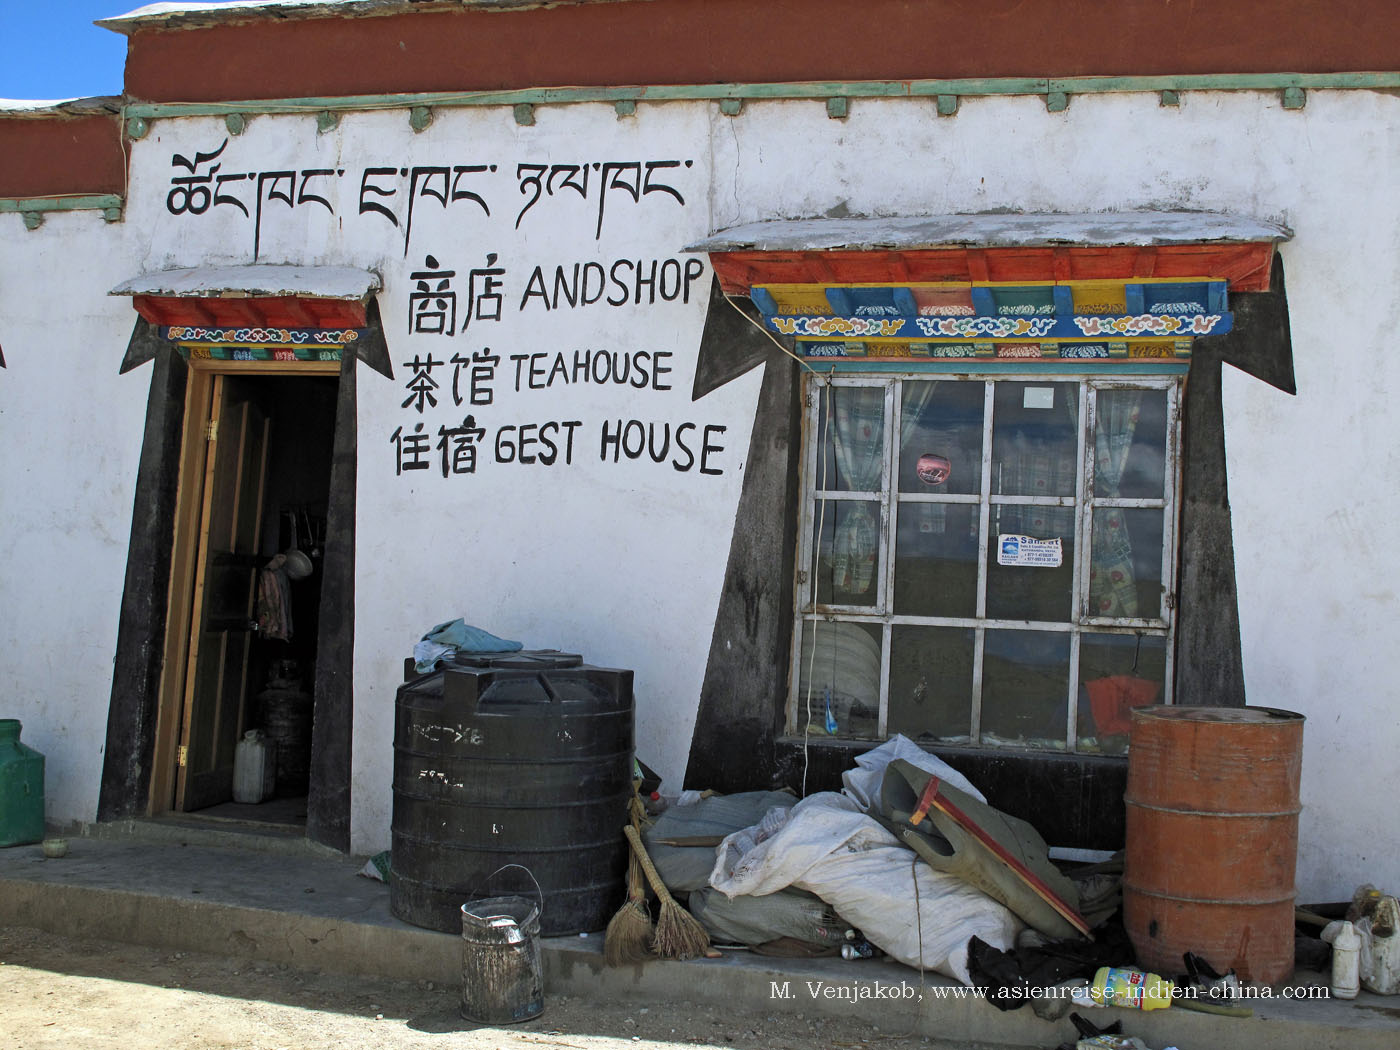 ཚོང་ཁང་ ཇ་ཁང་ ཉལ་ཁང་
商店 ANDSHOP
茶馆 TEAHOUSE
住宿 GEST HOUSE
M. Venjakob, www.asienreise-indien-china.com